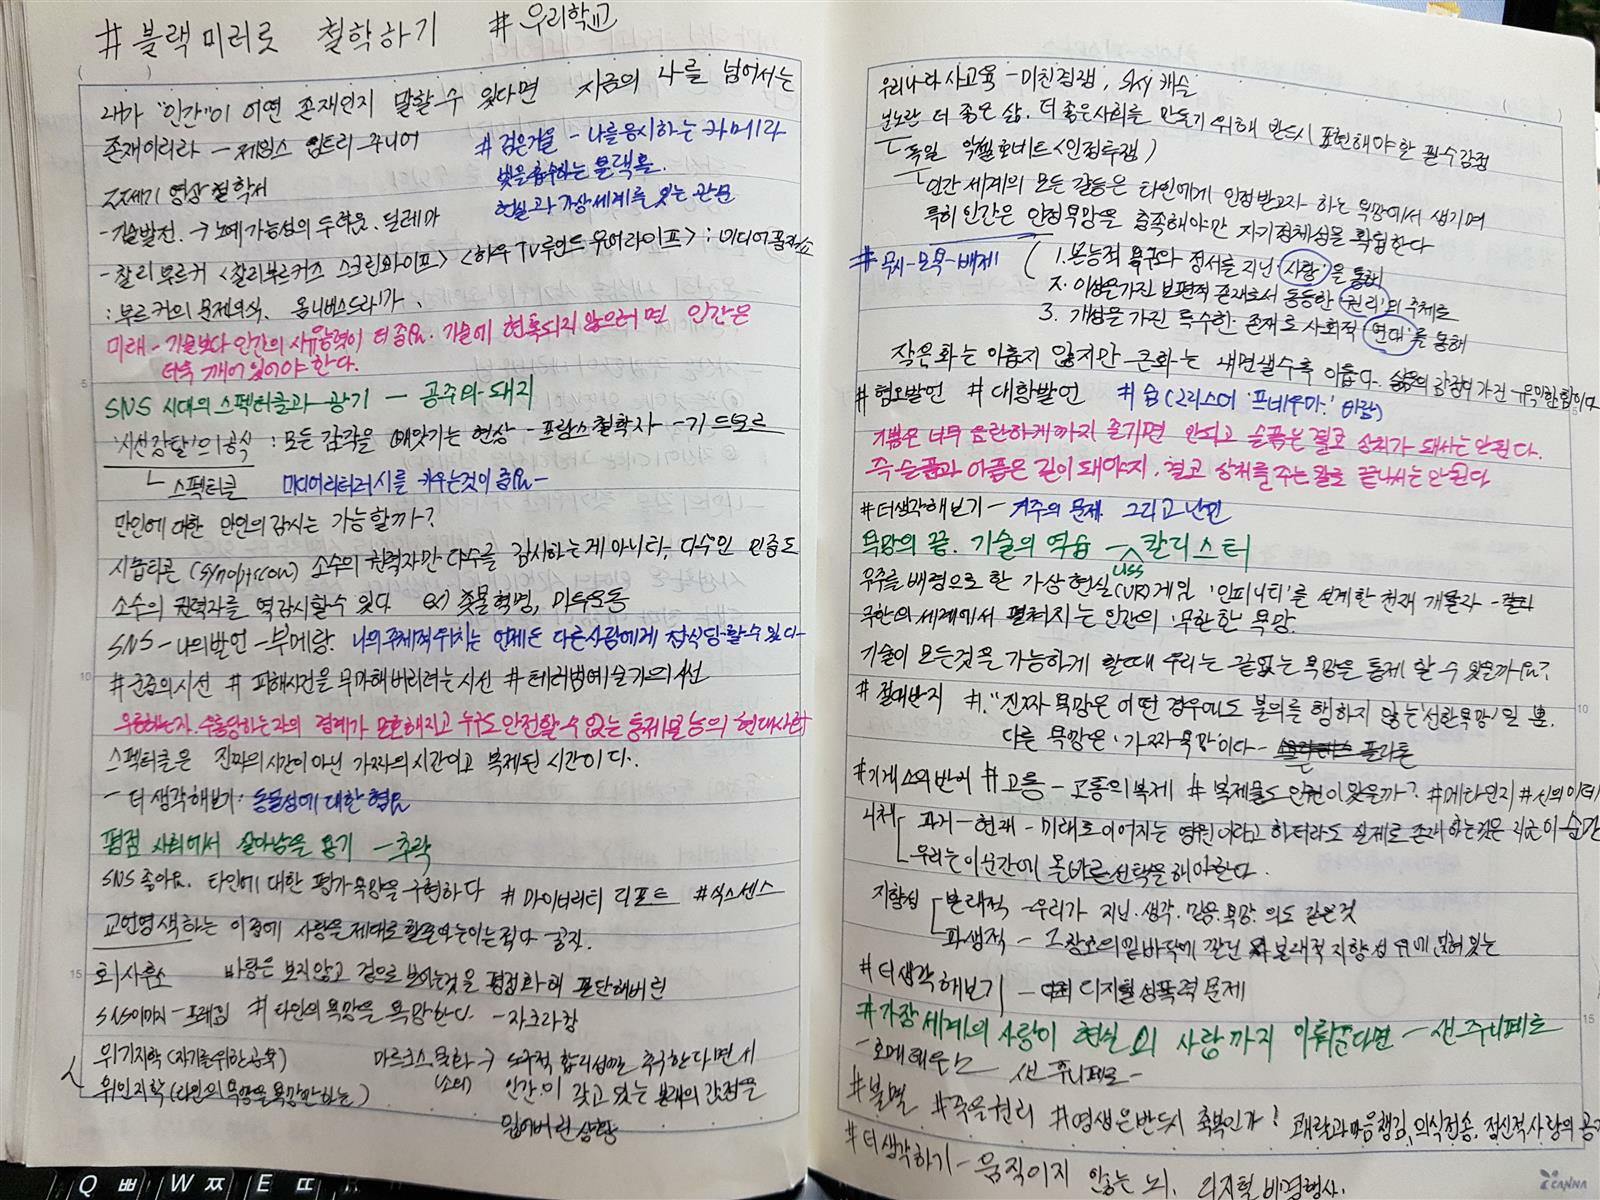 #블랙미러로 철학하기 #우리학교
내가 "인간"이 어떤 존재인지 말할 수 있다면 지금의 나를 넘어서는
존재이리라 - 제임스 팁트리 주니어
#검은거울 - 나를 응시하는 카메라
빛을 흡수하는 블랙홀.
현실과 가상세계를 잇는 관문
21세기 영상 철학서
- 기술발전. → 노예 가능성의 두려움. 딜레마
- 찰리 부르커 <찰리부르커즈 스크린와이프> <하우 TV 루인드 유어라이프> : 미디어 풍자쇼
: 부르커의 문제의식, 옴니버스드라마.
미래 - 기술보다 인간의 사유능력이 더 중요. 기술에 현혹되지 않으려면 인간은
더욱 깨어있어야 한다.
SNS 시대의 스펙터클과 광기 - 공주와 돼지
'시선강탈'의 공식 : 모든 감각을 빼앗기는 현상 - 프랑스 철학자 - 기 드보르
ㄴ 스펙터클 미디어리터러시를 키우는것이 중요 -
만인에 대한 만인의 감시는 가능할까?
시놉티콘 (synopticon) 소수의 권력자만 다수를 감시하는게 아니다, 다수인 민중도
소수의 권력자를 역감시할 수 있다 ex) 촛불혁명, 미투운동
SNS - 나의발언 - 부메랑. 나의 주체적 위치는 언제든 다른사람에게 잠식당할 수 있다 -
#군중의시선 #피해사건을 무마해버리려는 시선 #테러범예술가의 시선
경계가 모호해지고 누구도 안전할 수 없는 통제불능의 현대사회
스펙터클은 진짜의시간이 아닌 가짜의 시간이고 복제된 시간이다..
- 더 생각해보기: 동물성에 대한 혐오
평점 사회에서 살아남을 용기 - 추락
SNS 좋아요. 타인에 대한 평가욕망을 구현하다 #마이너리티 리포트 #식스센스
교언영색하는 이 중에 사람을 제대로 된 이는 적다 공자.
회사후소 바탕은 보지않고 겉으로 보이는것을 평점화해 판단해버린
SNS이미지 - 프레임 #타인의 욕망을 욕망한다. - 자크라캉
위기지학 (자기를 위한 공부)
위인지학 (타인의 욕망을 욕망만하는)
마르크스. 물화 → 노동적 합리성만 추구한다면서
(소외) 인간이 갖고 있는 본래의 감정을
잃어버린 상황
우리나라 사교육 - 미친경쟁, sky 캐슬
분노란 더 좋은 삶. 더 좋은사회를 만들기 위해 반드시 표현해야 할 필수감정
독일 악셀 호네트 <인정투쟁>
ㄴ 인간 세계의 모든 갈등은 타인에게 인정받고자 하는 욕망에서 생기며
특히 인간은 인정욕망을 충족해야만 자기정체성을 확립한다
#무시-모욕-배제 ( 1. 본능적 욕구와 정서를 지닌 '사랑'을 통해
2. 이성을가진 보편적 존재로서 동등한 '권리'의 주체로
3. 개성을 가진 특수한 존재로 사회적 '연대'를 통해
작은 화는 아름답지 않지만 큰화는 내면
#혐오발언 #대항발언 #숨 (그리스어 '프네우마.' 바람)
기쁨은 너무 음란하게까지 즐기면 안되고 슬픔은 결코 상처가 돼서는 안된다.
즉 슬픔과 아픔은 길이 돼야지, 결코 상처를 주는 칼로 끝나서는 안된다
#더생각해보기 - 거주의 문제. 그리고 난민
욕망의 끝. 기술의 역습 - USS 칼리스터
우주를 배경으로 한 가상현실(VR)게임 '인피니티'를 설계한 천재 개발자 -
무한의 세계에서 펼쳐지는 인간의 무한한 욕망.
기술이 모든것을 가능하게 할때 우리는 끝없는 욕망을 통제 할 수 있을까요?
#절대반지 #."진짜 욕망은 어떤 경우에도 불의를 행하지 않는 '선한욕망'일 뿐.
다른 욕망은 '가짜욕망'이다 - 플라톤
#기게스의반지 #고통 - 고통의 복제 #복제물도 인권이있을까? #메타인지 #신의
니체 - 과거 - 현재 - 미래로 이어지는 영원이라고 하더라도 실제로 존재하는것은 지금 이 순간
ㄴ우리는 이순간에 올바른 선택을 해야한다.
지향성 본래적 - 우리가 지닌. 생각. 믿음. 욕망. 의도 같은것
파생적 - 그 창조의 밑바닥에 깔린 본래적 지향성 있는
#더생각해보기 - 디지털 성폭력 문제
#가장 세계의 사랑이 현실의 사랑까지 이뤄준다면 - 샌 주니페로
- 호메데우스 샌 주니페로 -
#불멸 #죽을권리 #영생은 반드시 축복인가? 쾌락과 마음챙김, 의식전송, 정신적사랑의
#더생각하기 - 움직이지 않는 뇌.
CANNA
Q ㅃ W ㅉ E ㄸ